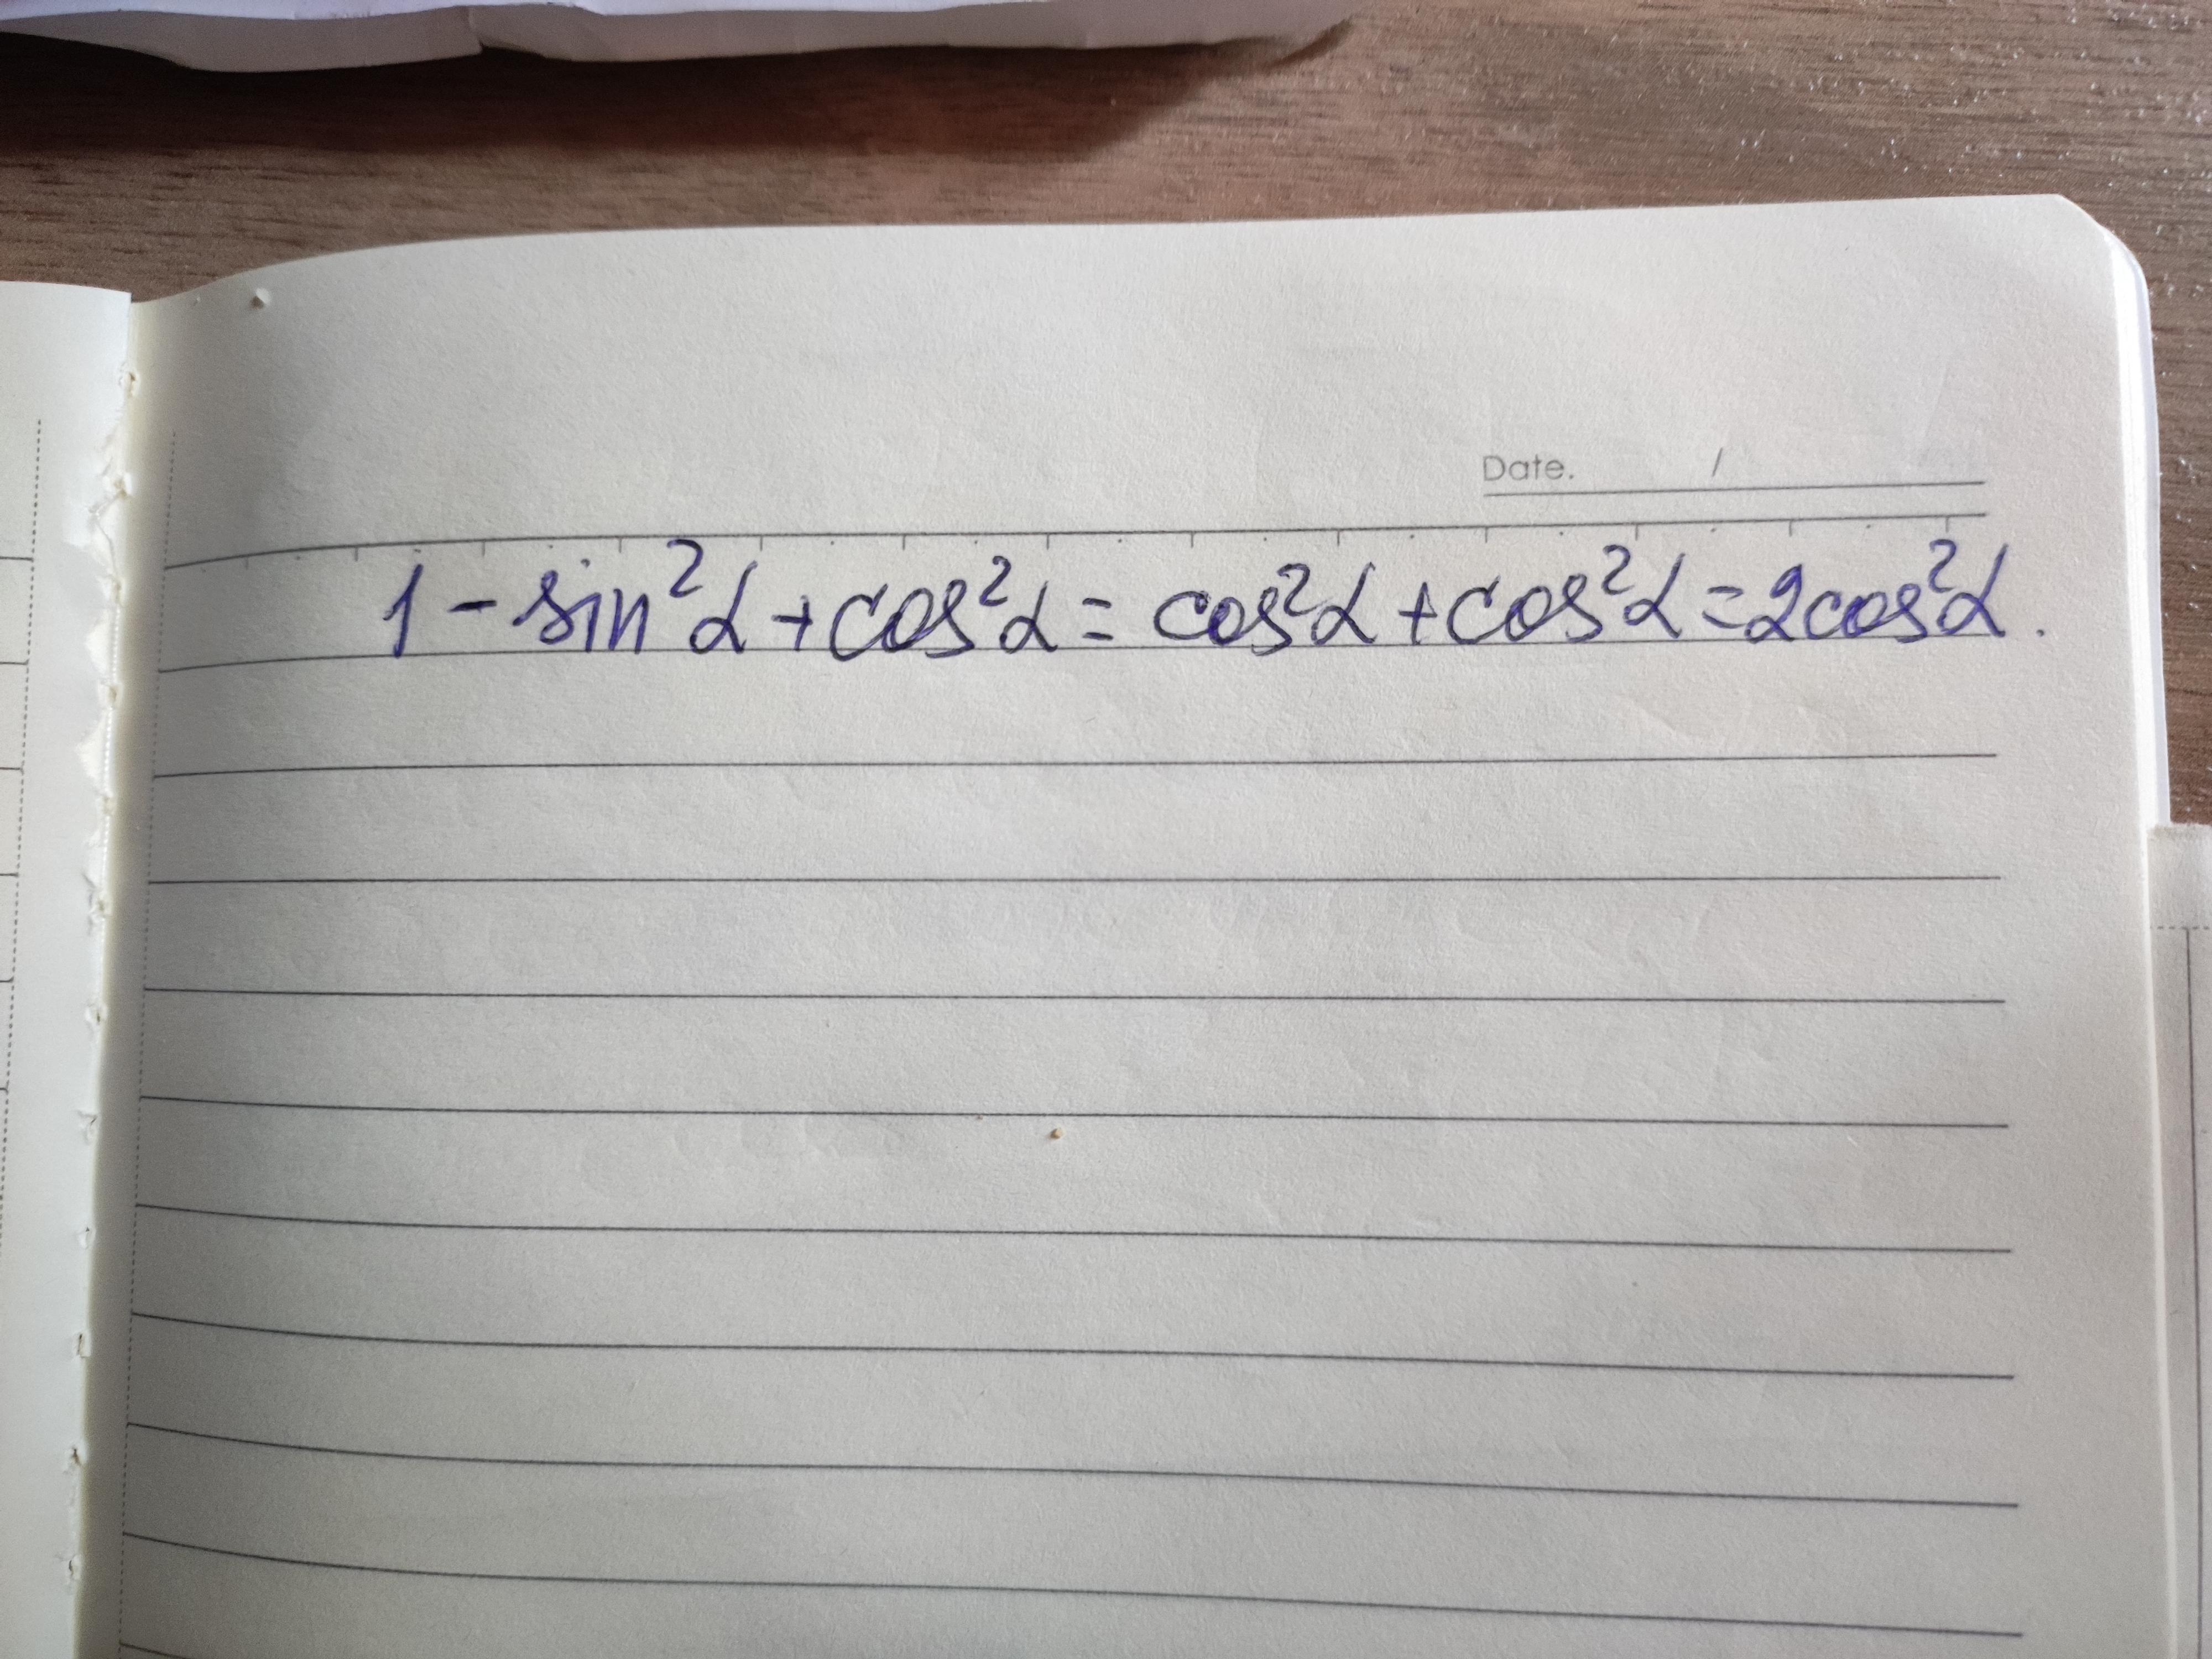 Date. /
1 - sin²α + cos²α = cos²α + cos²α = 2cos²α.